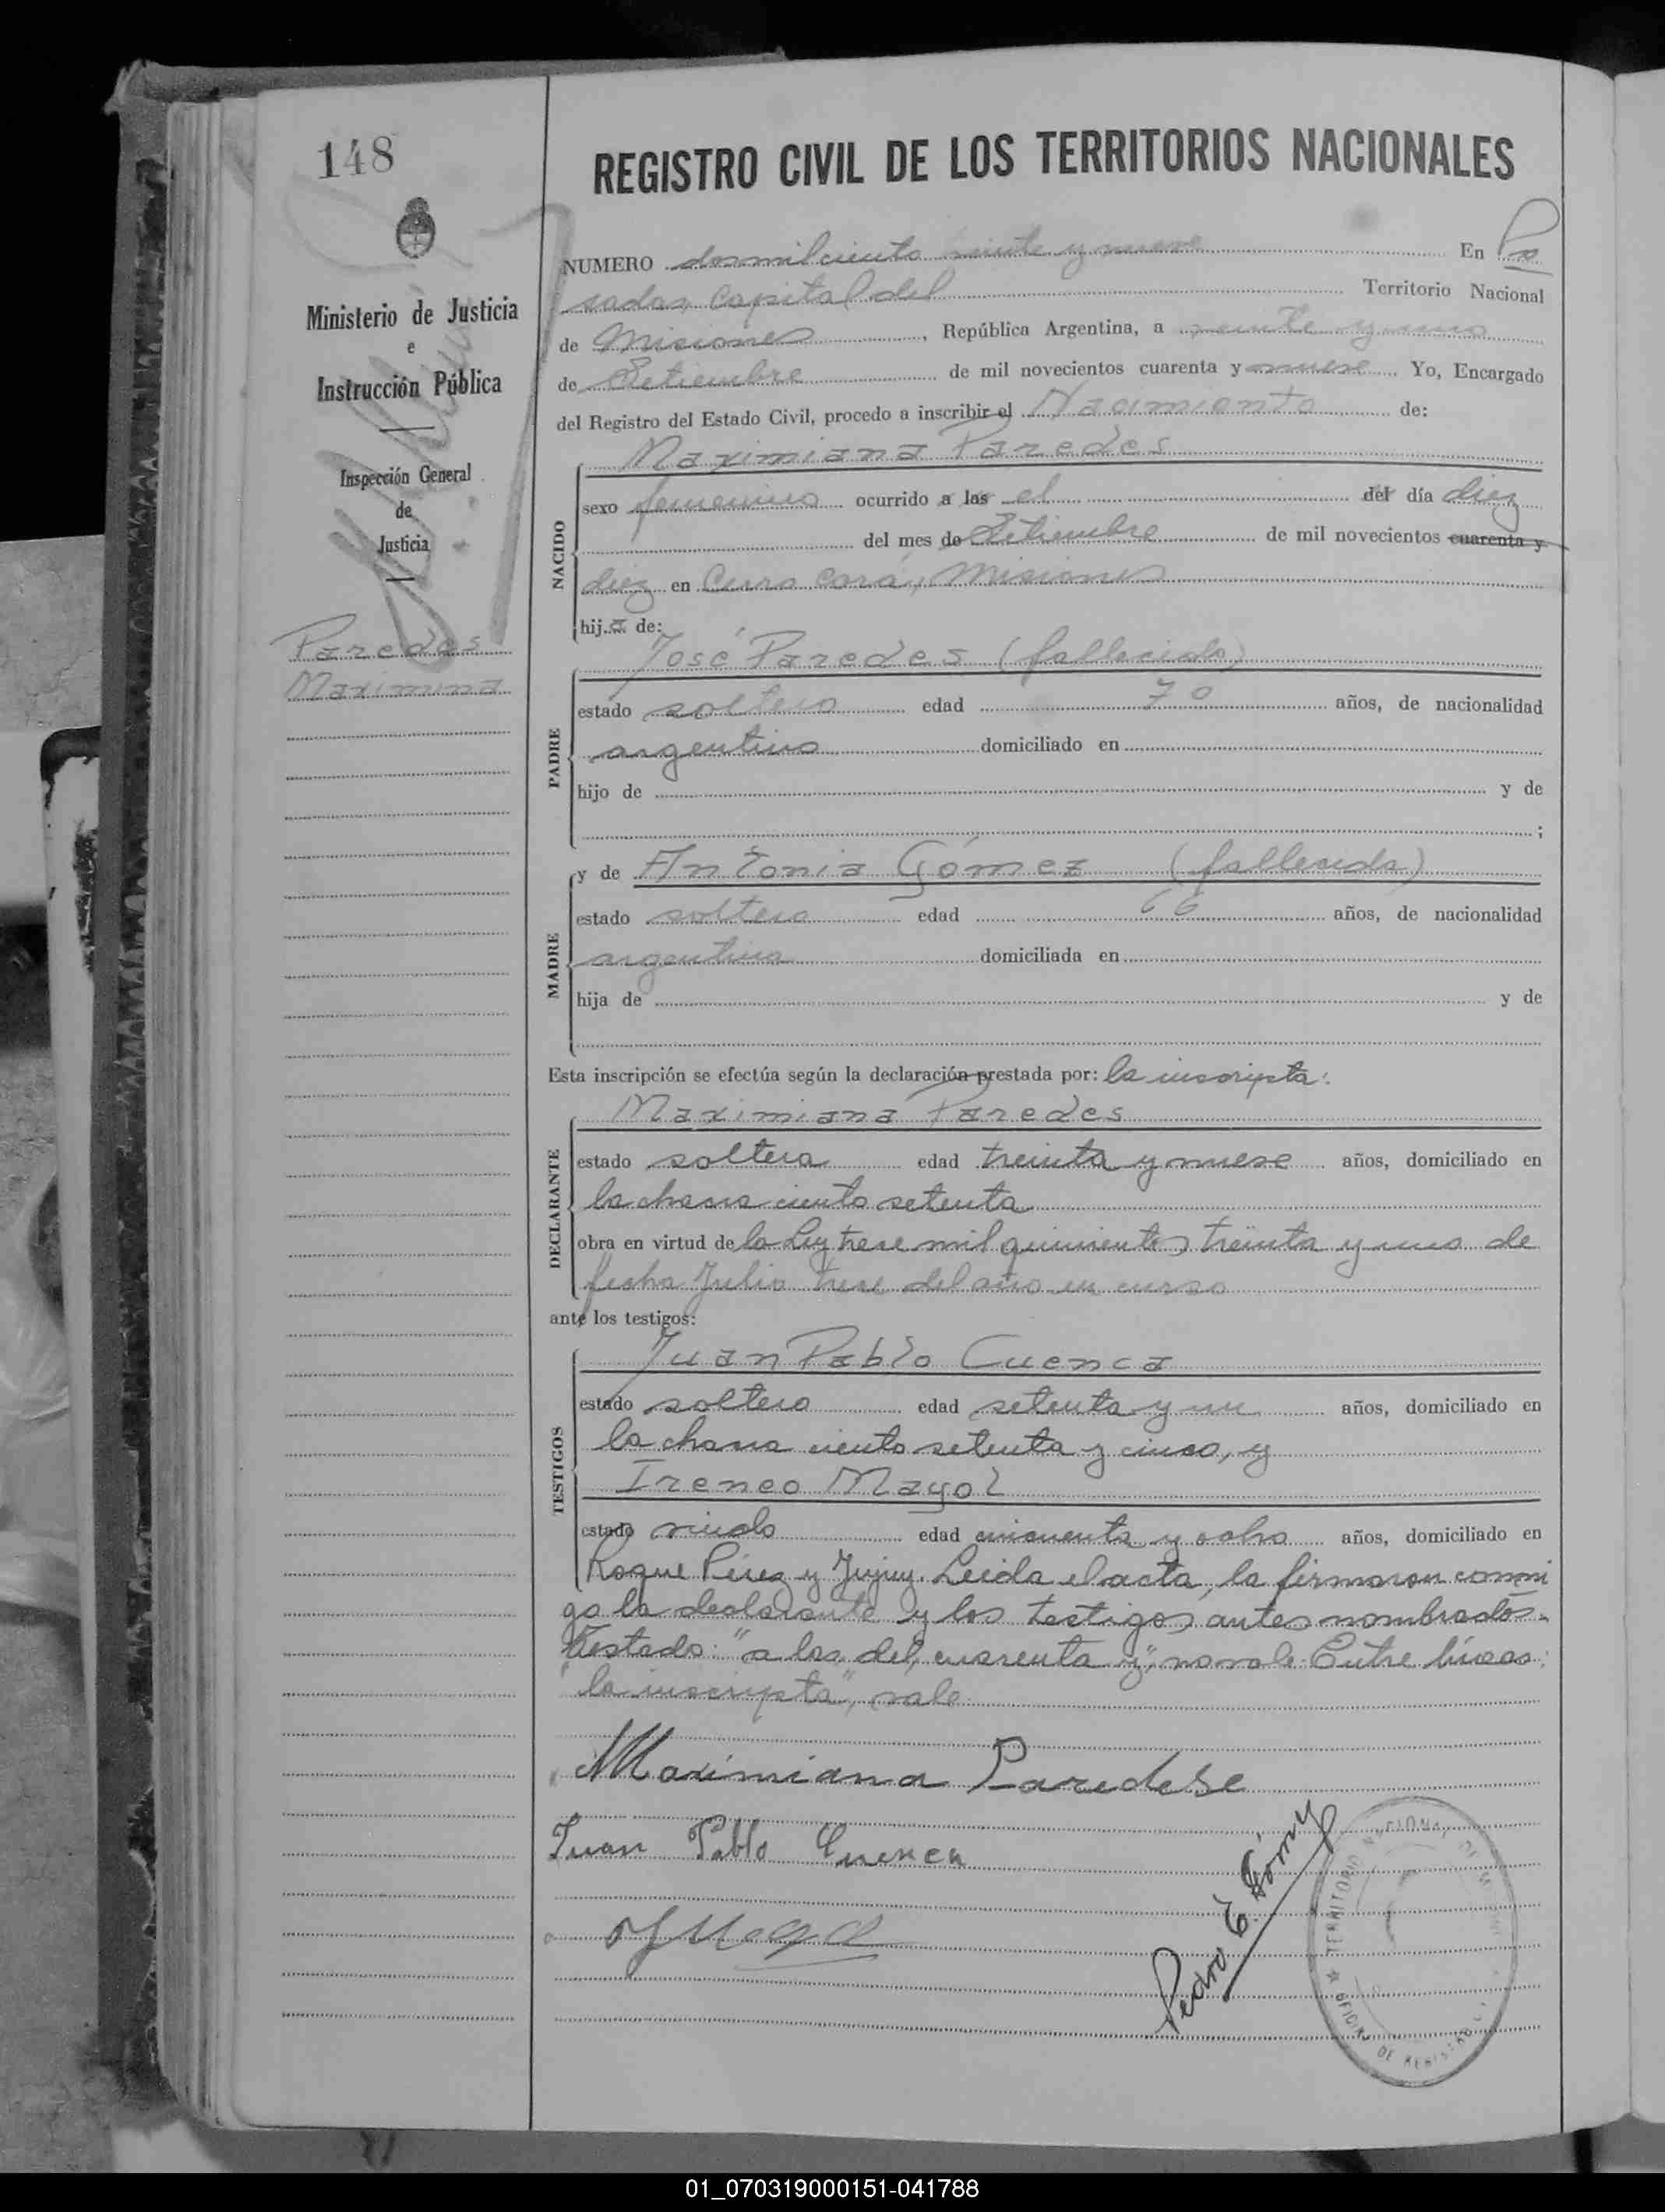 148
Ministerio de Justicia
e
Instrucción Pública
Inspección General
de
Justicia
Paredes
Maximiana
REGISTRO CIVIL DE LOS TERRITORIOS NACIONALES
NUMERO dosmilciento veinte y nueve En Po
sadas, Capital del Territorio Nacional
de Misiones, República Argentina, a veinte y uno
de Setiembre de mil novecientos cuarenta y nueve Yo, Encargado
del Registro del Estado Civil, procedo a inscribir el Nacimiento de:
Maximiana Paredes
NACIDO
sexo femenino ocurrido a las el del día diez
del mes de Setiembre de mil novecientos cuarenta y
diez en Cerro Corá, Misiones
hija de:
José Paredes (fallecido)
PADRE
estado soltero edad 70 años, de nacionalidad
argentino domiciliado en
hijo de y de
;
y de Antonia Gómez (fallecida)
MADRE
estado soltera edad 66 años, de nacionalidad
argentina domiciliada en
hija de y de
Esta inscripción se efectúa según la declaración prestada por: la inscripta:
Maximiana Paredes
DECLARANTE
estado soltera edad treinta y nueve años, domiciliado en
la chacra ciento setenta
obra en virtud de la Ley trece mil quinientos treinta y uno de
fecha Julio trece del año en curso
ante los testigos:
Juan Pablo Cuenca
TESTIGOS
estado soltero edad setenta y un años, domiciliado en
la chacra ciento setenta y cinco, y
Ireneo Mayol
estado viudo edad cincuenta y ocho años, domiciliado en
Roque Pérez y Jujuy. Leida el acta, la firmaron conmi
go la declarante y los testigos antes nombrados.
Testado: "a las, del, cuarenta y", no vale. Entre líneas:
"la inscripta", vale.
Maximiana Paredese
Juan Pablo Cuenca
Pedro E. Gómez
TERRITORIO NACIONAL DE MISIONES
★ OFICINA DE REGISTRO CIVIL
01_070319000151-041788